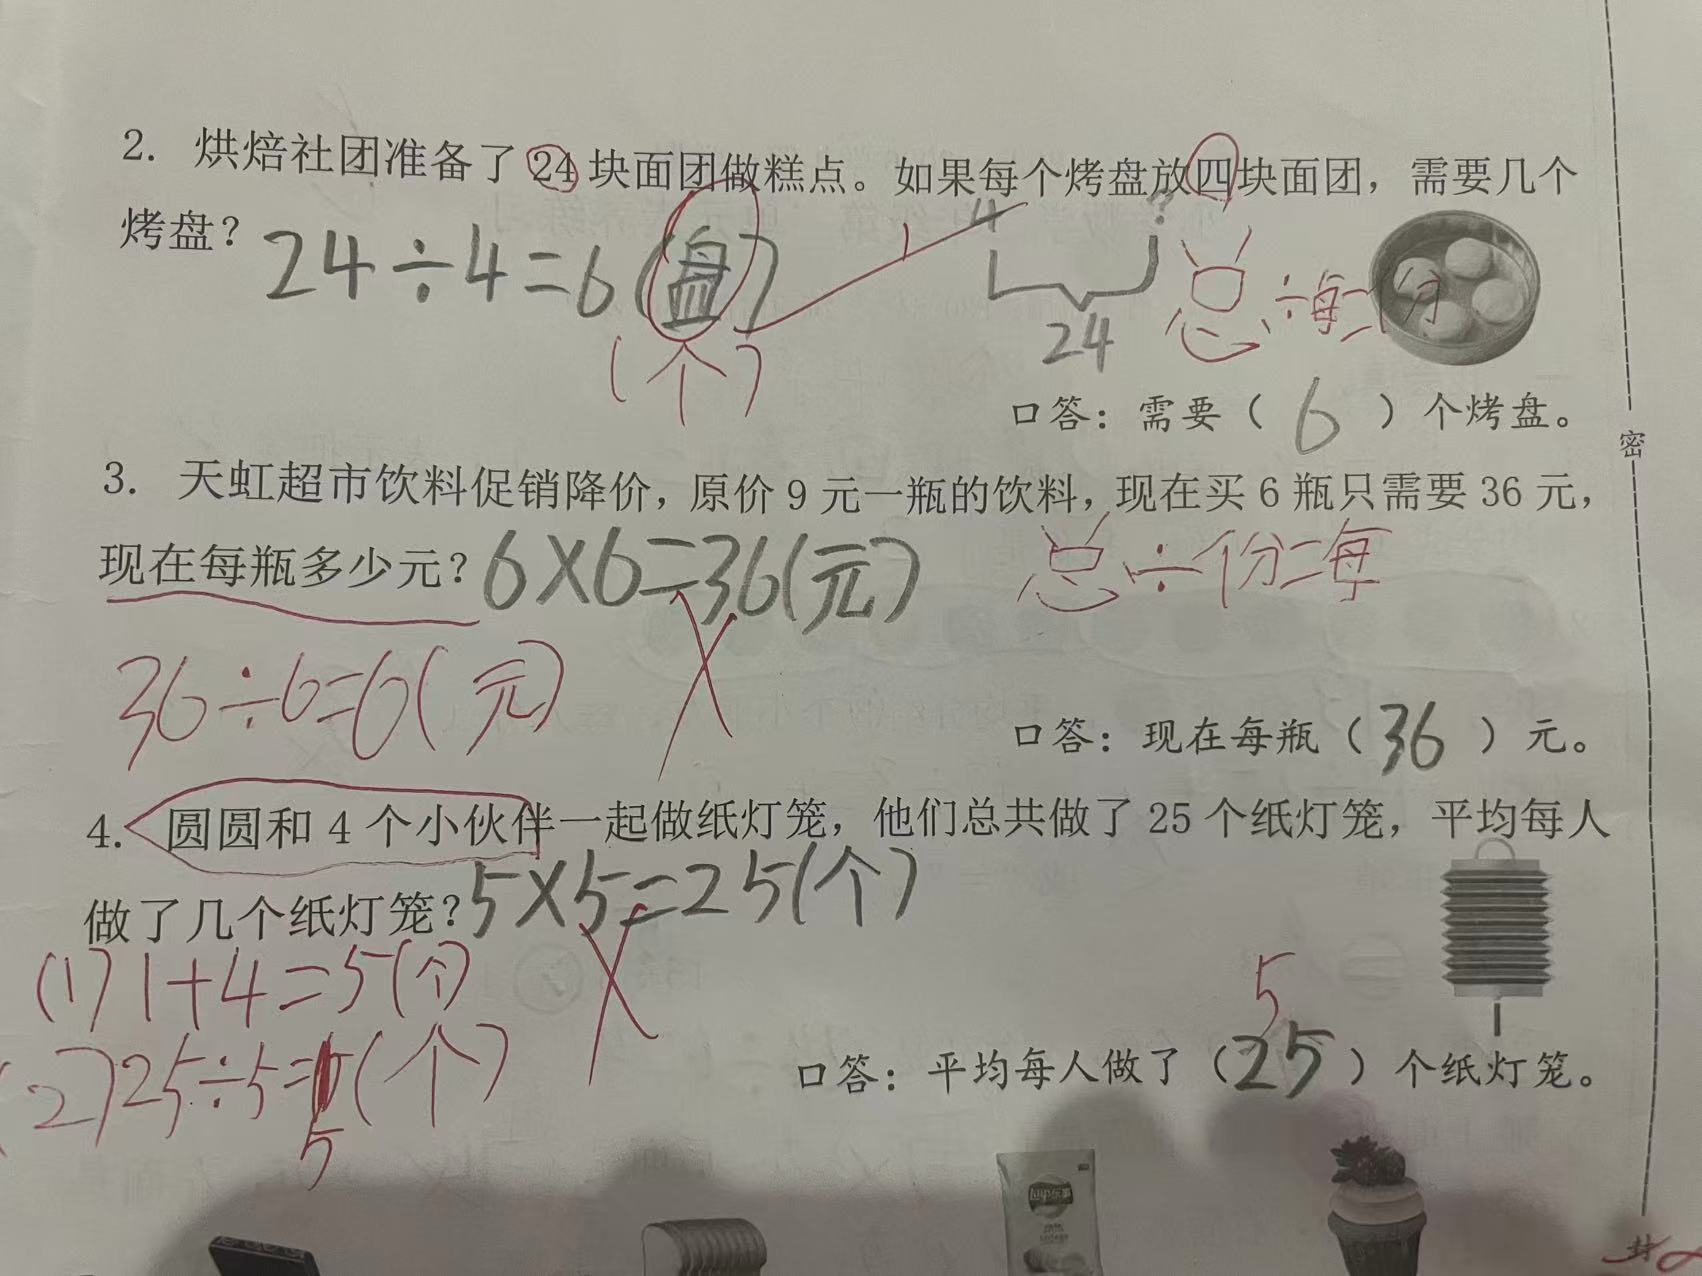 2. 烘焙社团准备了24块面团做糕点。如果每个烤盘放四块面团，需要几个
烤盘？
24÷4=6(盘)
4 ?
24
总÷每=份
(个)
口答：需要（ 6 ）个烤盘。
3. 天虹超市饮料促销降价，原价9元一瓶的饮料，现在买6瓶只需要36元，
现在每瓶多少元？
6×6=36(元)
总÷份=每
36÷6=6(元)
口答：现在每瓶（ 36 ）元。
4. 圆圆和4个小伙伴一起做纸灯笼，他们总共做了25个纸灯笼，平均每人
做了几个纸灯笼？
5×5=25(个)
(1)1+4=5(个)
(2)25÷5=5(个)
5
口答：平均每人做了（ 25 ）个纸灯笼。
密
封